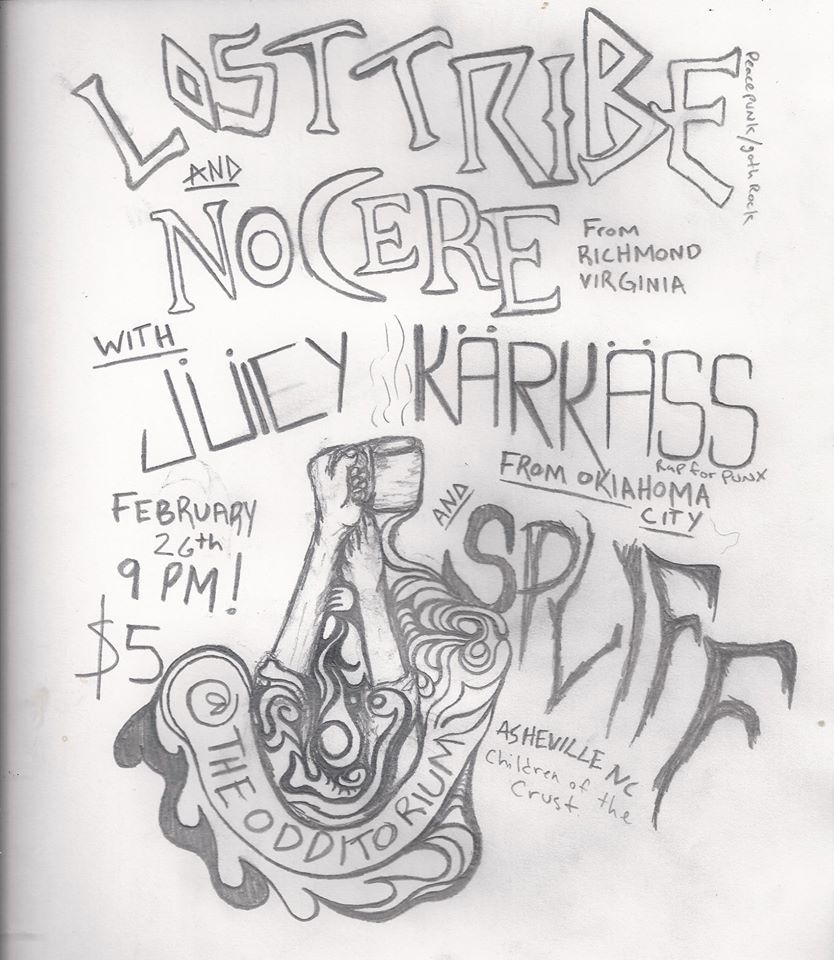 LOST TRIBE
Peacepunk/goth Rock
AND
NOCERE
From
RICHMOND
VIRGINIA
WITH
JÜICY KÄRKÄSS
Rap for PUNX
FROM OKlAHOMA
CITY
FEBRUARY
26th
9 PM!
$5
AND
SPLIFF
ASHEVILLE NC
Children of the
Crust.
@ THE ODDITORIUM